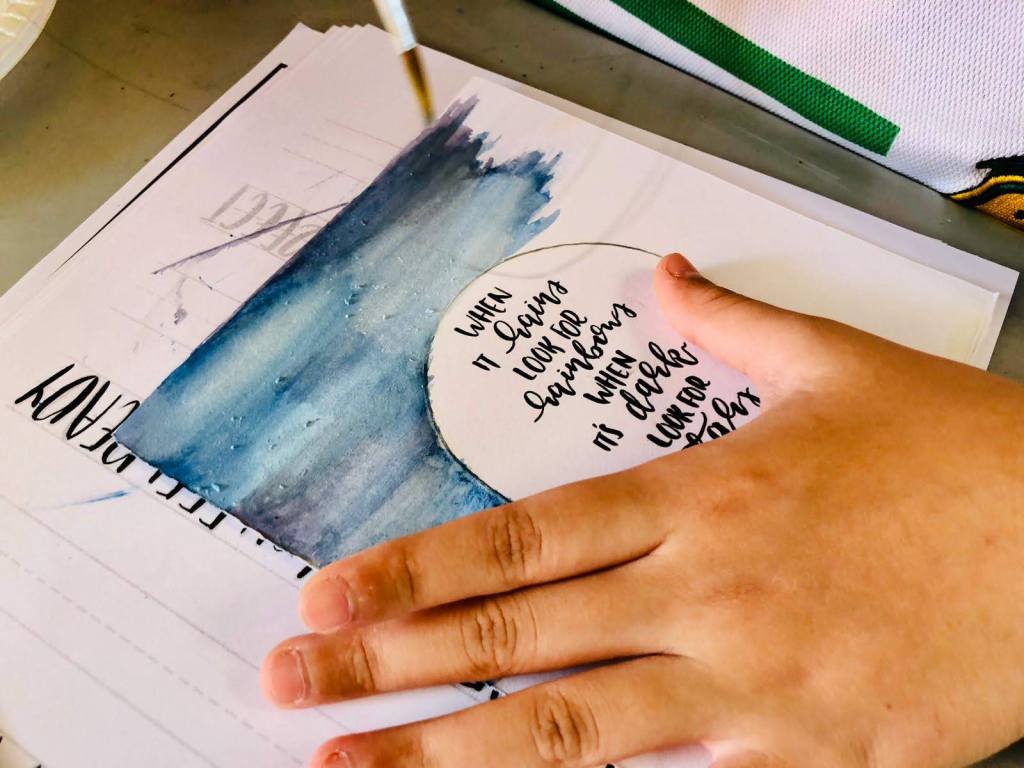 WHEN
IT rains
LOOK FOR
rainbows
WHEN
IT'S dark
LOOK FOR
READY